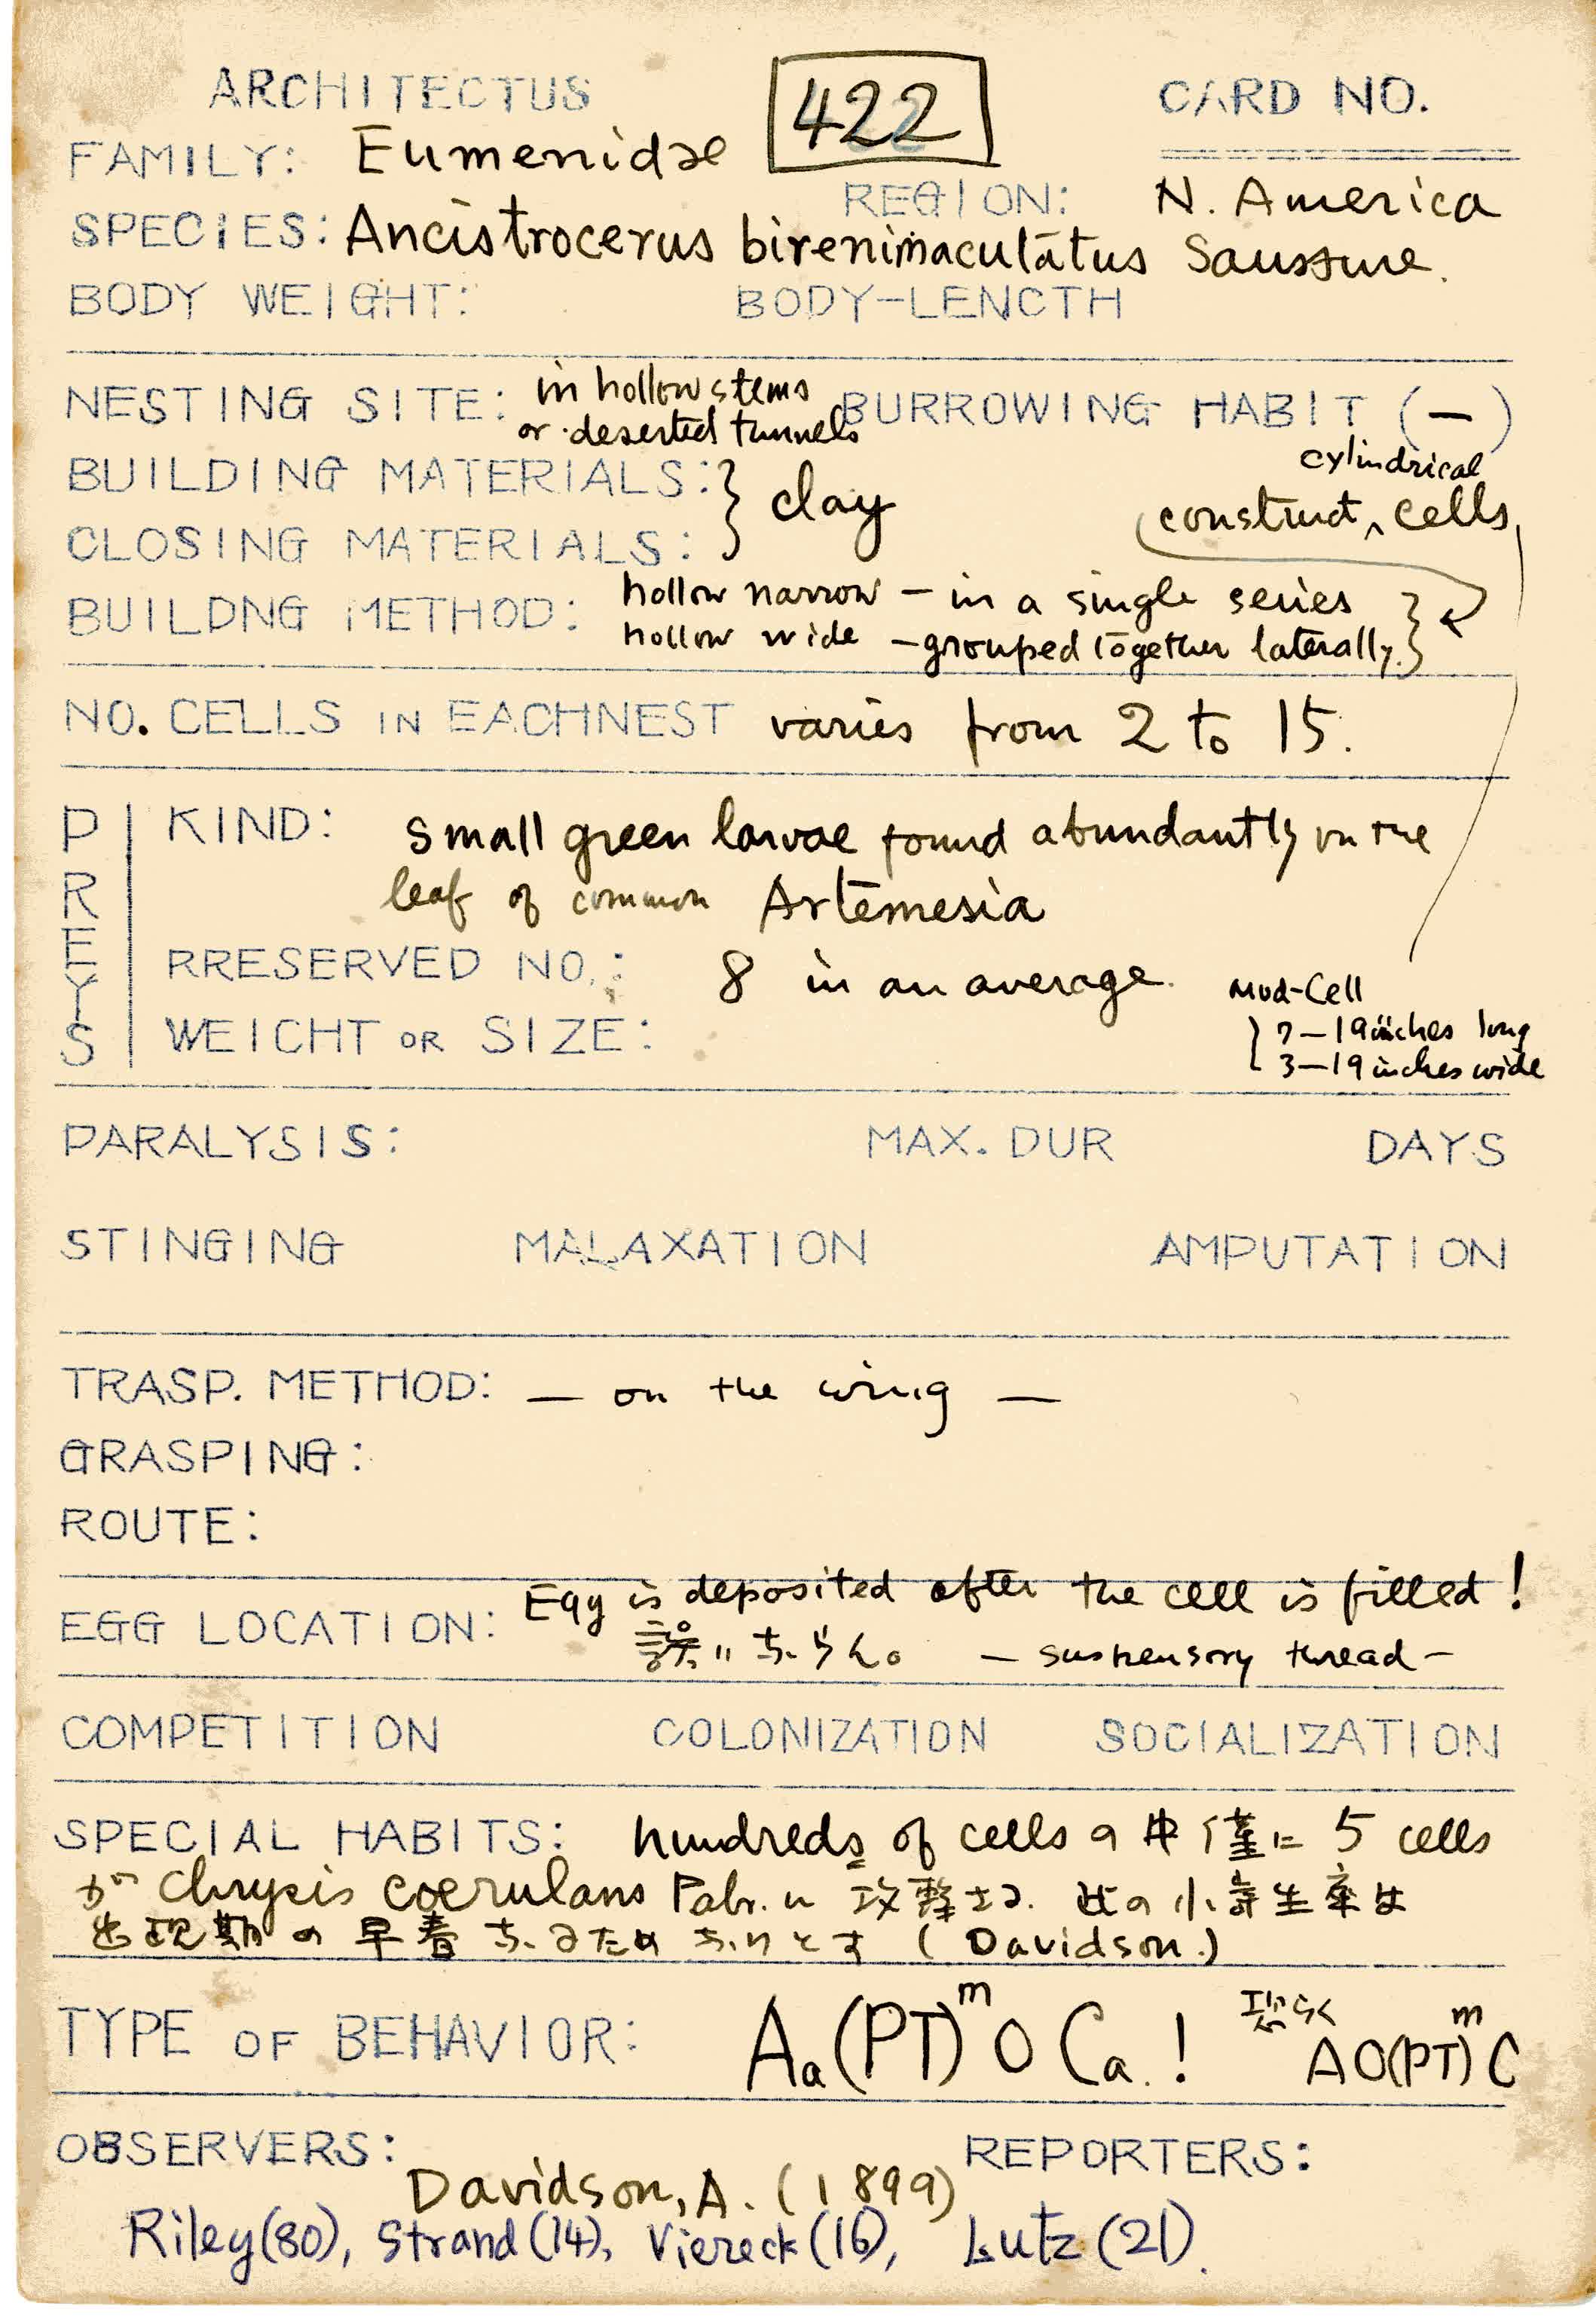 ARCHITECTUS 422 CARD NO.
FAMILY: Eumenidae
REGION: N. America
SPECIES: Ancistrocerus birenimaculatus Saussure.
BODY WEIGHT: BODY-LENCTH
NESTING SITE: in hollow stems
or deserted tunnels
BURROWING HABIT (—)
BUILDING MATERIALS: } clay
CLOSING MATERIALS:
cylindrical
construct ^ cells
BUILDNG METHOD: hollow narrow — in a single series
hollow wide — grouped together laterally. }
NO. CELLS IN EACHNEST varies from 2 to 15.
PREYS
KIND: small green larvae found abundantly on the
leaf of common Artemesia
RRESERVED NO.: 8 in an average.
WEICHT OR SIZE:
Mud-Cell
7—19 inches long
3—19 inches wide
PARALYSIS: MAX. DUR DAYS
STINGING MALAXATION AMPUTATION
TRASP. METHOD: — on the wing —
GRASPING:
ROUTE:
EGG LOCATION: Egg is deposited after the cell is filled!
誤りならん。 — suspensory thread —
COMPETITION COLONIZATION SOCIALIZATION
SPECIAL HABITS: hundreds of cells の中僅に 5 cells
が Chrysis coerulans Fabr. に攻撃さる. 此の小寄生率は
出現期の早春なるためなりとす (Davidson.)
TYPE OF BEHAVIOR: Aa(PT)ᵐO Ca.! 恐らく AO(PT)ᵐC
OBSERVERS: REPORTERS:
Davidson, A. (1899)
Riley(80), Strand(14), Viereck(16), Lutz(21).